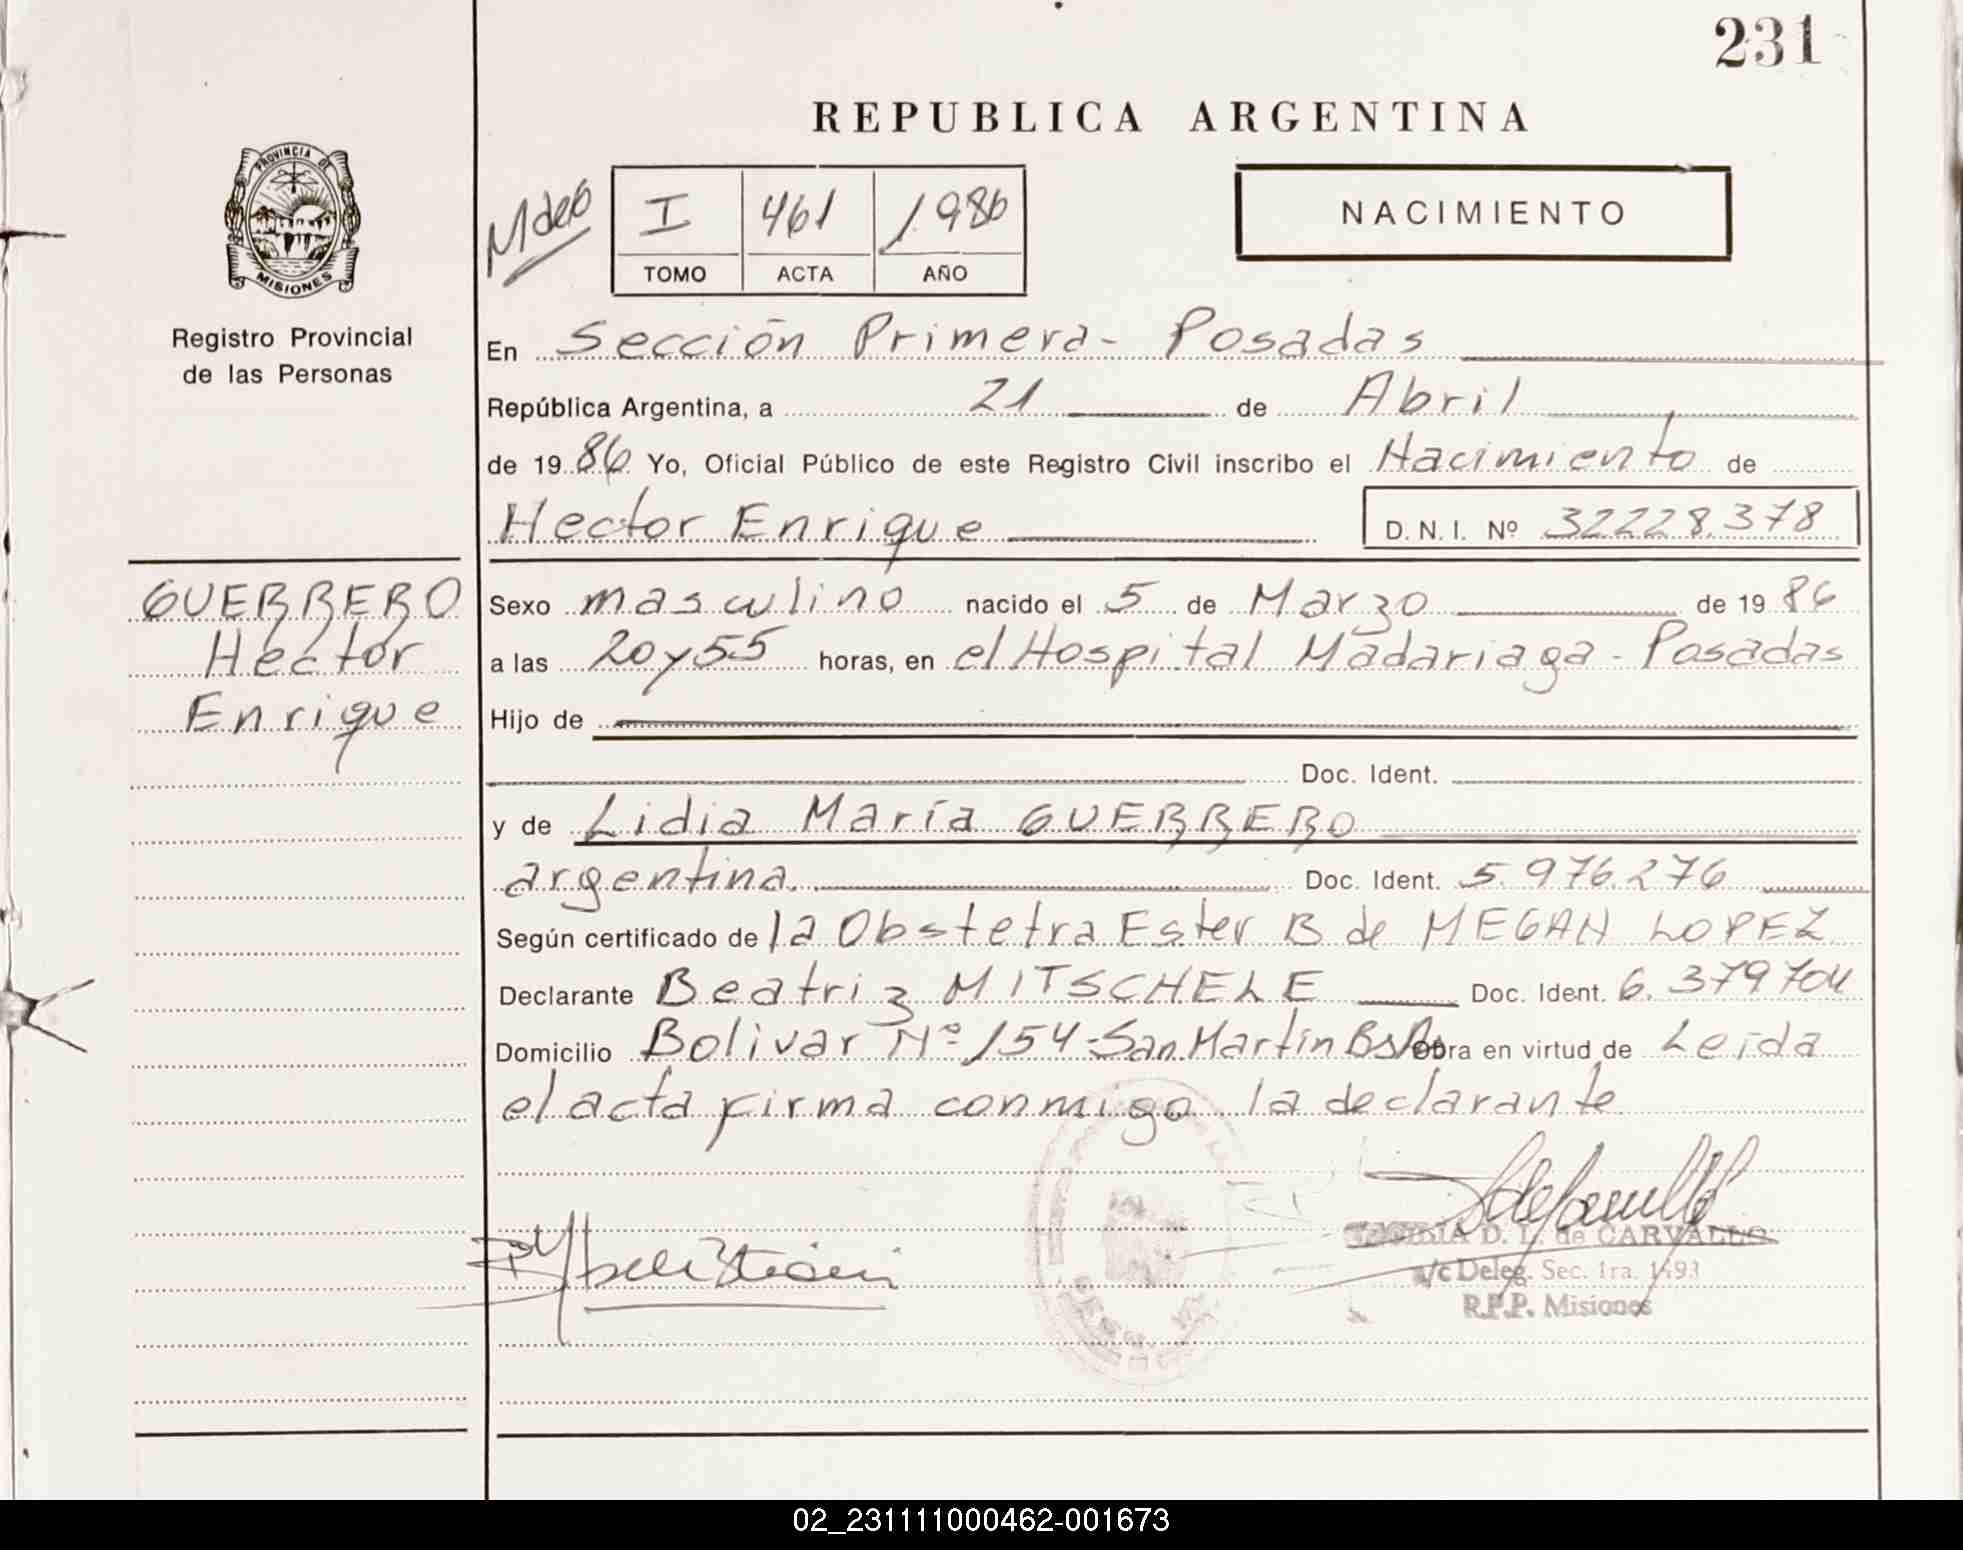 231
REPUBLICA ARGENTINA
PROVINCIA DE
MISIONES
Registro Provincial
de las Personas
I 461 1986
TOMO ACTA AÑO
NACIMIENTO
En Sección Primera - Posadas
República Argentina, a 21 de Abril
de 1986 Yo, Oficial Público de este Registro Civil inscribo el Nacimiento de
Hector Enrique D. N. I. Nº 32228.378
GUERRERO
Hector
Enrique
Sexo masculino nacido el 5 de Marzo de 1986
a las 20 y 55 horas, en el Hospital Madariaga - Posadas
Hijo de
Doc. Ident.
y de Lidia María GUERRERO
argentina. Doc. Ident. 5.976.276
Según certificado de la Obstetra Ester B de MEGAN LOPEZ
Declarante Beatriz MITSCHELE Doc. Ident. 6.379704
Domicilio Bolivar Nº 154 - San Martín Bs As Obra en virtud de Leida
el acta firma conmigo la declarante
D. L. de CARVALLO
a/c Deleg. Sec. 1ra. 1493
R.P.P. Misiones
02_231111000462-001673